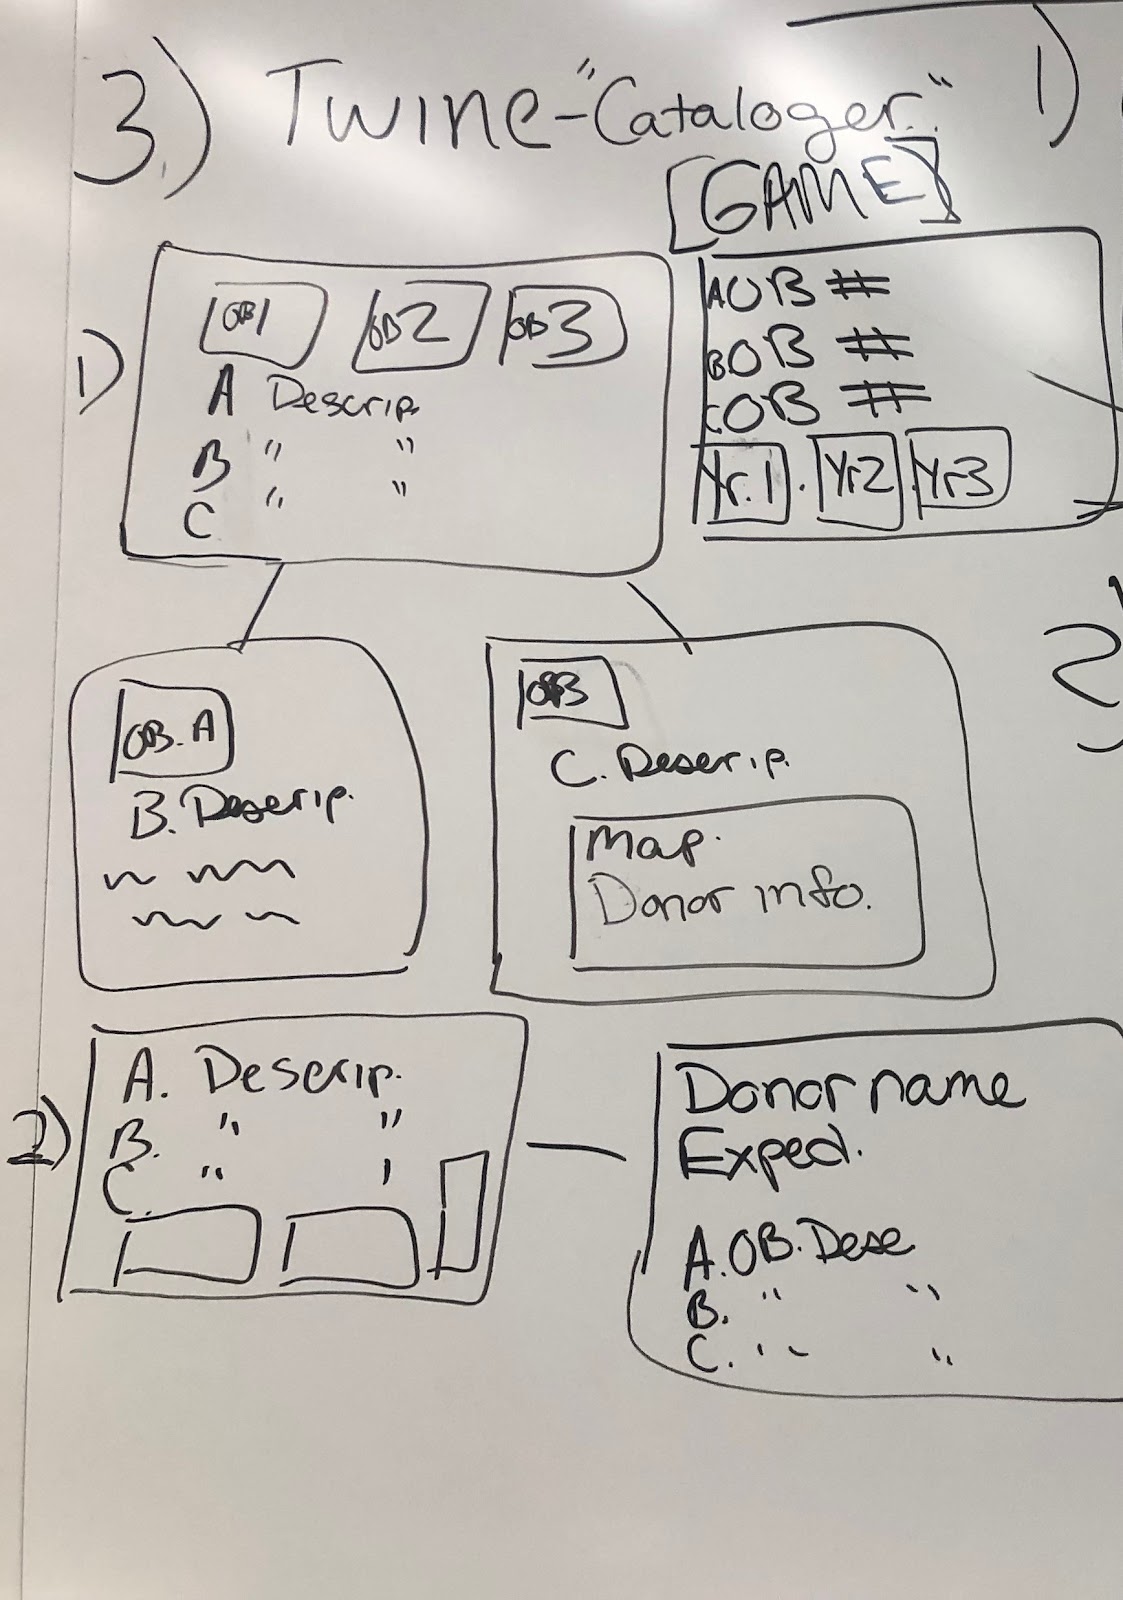 3.) Twine-"Cataloger"
[GAME]
1)
1)
OB1 OB2 OB3
A Descrip.
B " "
C " "
A OB #
B. OB #
C. OB #
Yr.1 . Yr2 . Yr3
2)
OB. A
B. Descrip.
OB3
C. Descrip.
Map.
Donor info.
2)
A. Descrip.
B. " "
C. " '
Donor name
Exped.
A. OB. Desc
B. " "
C. " "